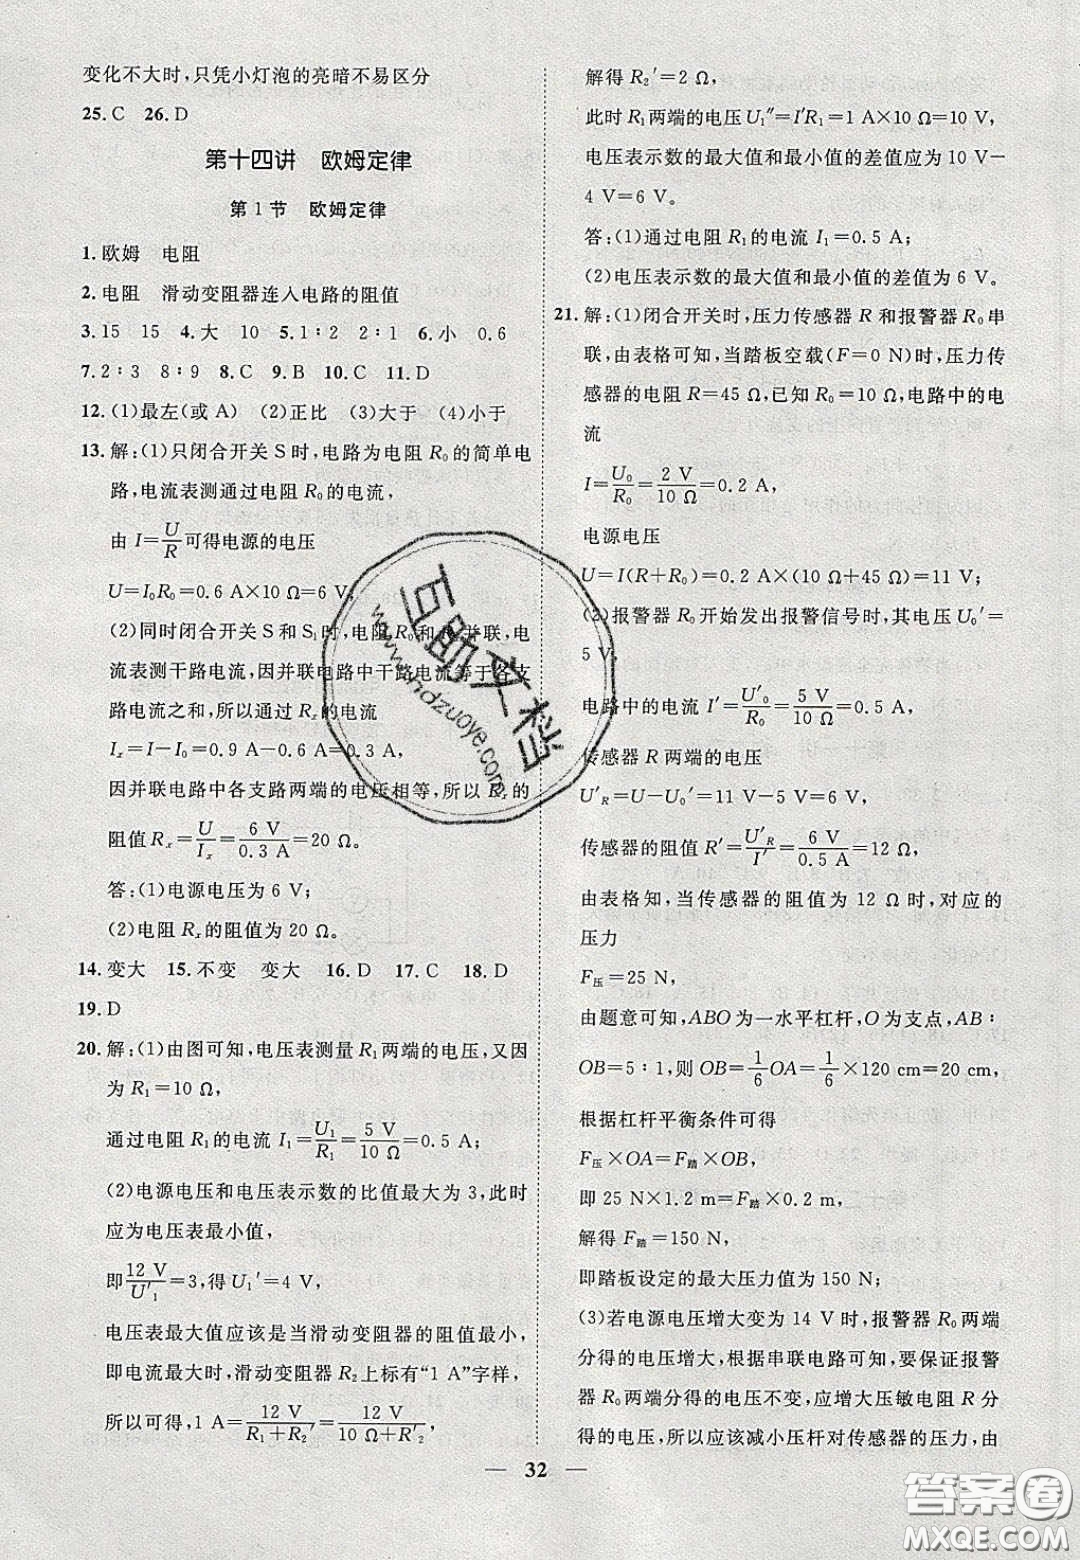 变化不大时,只凭小灯泡的亮暗不易区分
25.C 26.D
第十四讲 欧姆定律
第1节 欧姆定律
1.欧姆 电阻
2.电阻 滑动变阻器连入电路的阻值
3.15 15 4.大 10 5.1∶2 2∶1 6.小 0.6
7.2∶3 8∶9 8.C 9.B 10.C 11.D
12.(1)最左(或A) (2)正比 (3)大于 (4)小于
13.解:(1)只闭合开关S时,电路为电阻R₀的简单电
路,电流表测通过电阻R₀的电流,
由 I=U/R可得电源的电压
U=I₀R₀=0.6 A×10 Ω=6 V;
(2)同时闭合开关S和S₁时,电阻R₀和Rₓ并联,电
流表测干路电流,因并联电路中干路电流等于各支
路电流之和,所以通过Rₓ的电流
Iₓ=I-I₀=0.9 A-0.6 A=0.3 A,
因并联电路中各支路两端的电压相等,所以Rₓ的
阻值Rₓ=U/Iₓ=6 V/0.3 A=20 Ω。
答:(1)电源电压为6 V;
(2)电阻Rₓ的阻值为20 Ω。
14.变大 15.不变 变大 16.D 17.C 18.D
19.D
20.解:(1)由图可知,电压表测量R₁两端的电压,又因
为R₁=10 Ω,
通过电阻R₁的电流I₁=U₁/R₁=5 V/10 Ω=0.5 A;
(2)电源电压和电压表示数的比值最大为3,此时
应为电压表最小值,
即12 V/U′₁=3,得U₁′=4 V,
电压表最大值应该是当滑动变阻器的阻值最小,
即电流最大时,滑动变阻器R₂上标有“1 A”字样,
所以可得,1 A=12 V/(R₁+R′₂)=12 V/(10 Ω+R′₂),
解得R₂′=2 Ω,
此时R₁两端的电压U₁″=I′R₁=1 A×10 Ω=10 V,
电压表示数的最大值和最小值的差值应为10 V-
4 V=6 V。
答:(1)通过电阻R₁的电流I₁=0.5 A;
(2)电压表示数的最大值和最小值的差值为6 V。
21.解:(1)闭合开关时,压力传感器R和报警器R₀串
联,由表格可知,当踏板空载(F=0 N)时,压力传
感器的电阻R=45 Ω,已知R₀=10 Ω,电路中的电
流
I=U₀/R₀=2 V/10 Ω=0.2 A,
电源电压
U=I(R+R₀)=0.2 A×(10 Ω+45 Ω)=11 V;
(2)报警器R₀开始发出报警信号时,其电压U₀′=
5 V,
电路中的电流I′=U′₀/R₀=5 V/10 Ω=0.5 A,
传感器R两端的电压
U′R=U-U₀′=11 V-5 V=6 V,
传感器的阻值R′=U′R/I′=6 V/0.5 A=12 Ω,
由表格知,当传感器的阻值为12 Ω时,对应的
压力
F压=25 N,
由题意可知,ABO为一水平杠杆,O为支点,AB∶
OB=5∶1,则OB=1/6OA=1/6×120 cm=20 cm,
根据杠杆平衡条件可得
F压×OA=F踏×OB,
即25 N×1.2 m=F踏×0.2 m,
解得F踏=150 N,
即踏板设定的最大压力值为150 N;
(3)若电源电压增大变为14 V时,报警器R₀两端
分得的电压增大,根据串联电路可知,要保证报警
器R₀两端分得的电压不变,应增大压敏电阻R分
得的电压,所以应该减小压杆对传感器的压力,由
32
互助文档
www.hdzuoye.com
答案圈
MXQE.COM